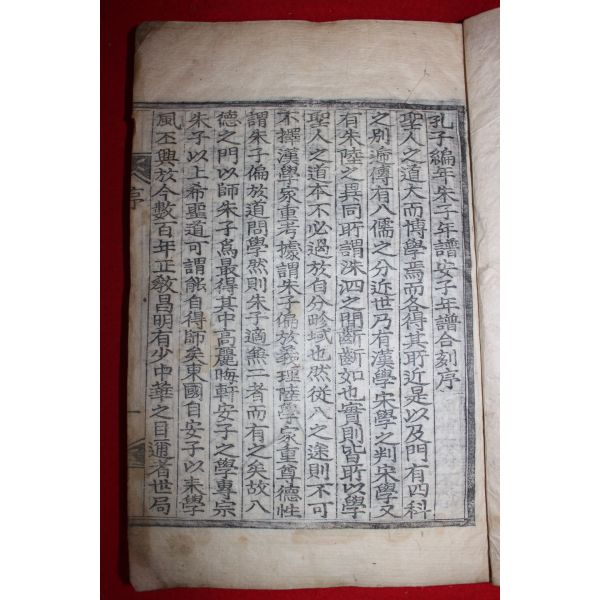 孔子編年朱子年譜安子年譜合刻序
聖人之道大而博學焉而各得其所近是以及門有四科
之別遍傳有八儒之分近世乃有漢學宋學之判宋學又
有朱陸之異同所謂洙泗之間斷斷如也實則皆所以學
聖人之道本不必過於自分畛域也然從入之途則不可
不擇漢學家重考據謂朱子偏於義理陸學家重尊德性
謂朱子偏於道問學然則朱子適無二者而有之矣故入
德之門以師朱子爲最得其中高麗晦軒安子之學專宗
朱子以上希聖道可謂能自得師矣東國自安子以來學
風丕興於今數百年正敎昌明有少中華之目邇者世局
序
一